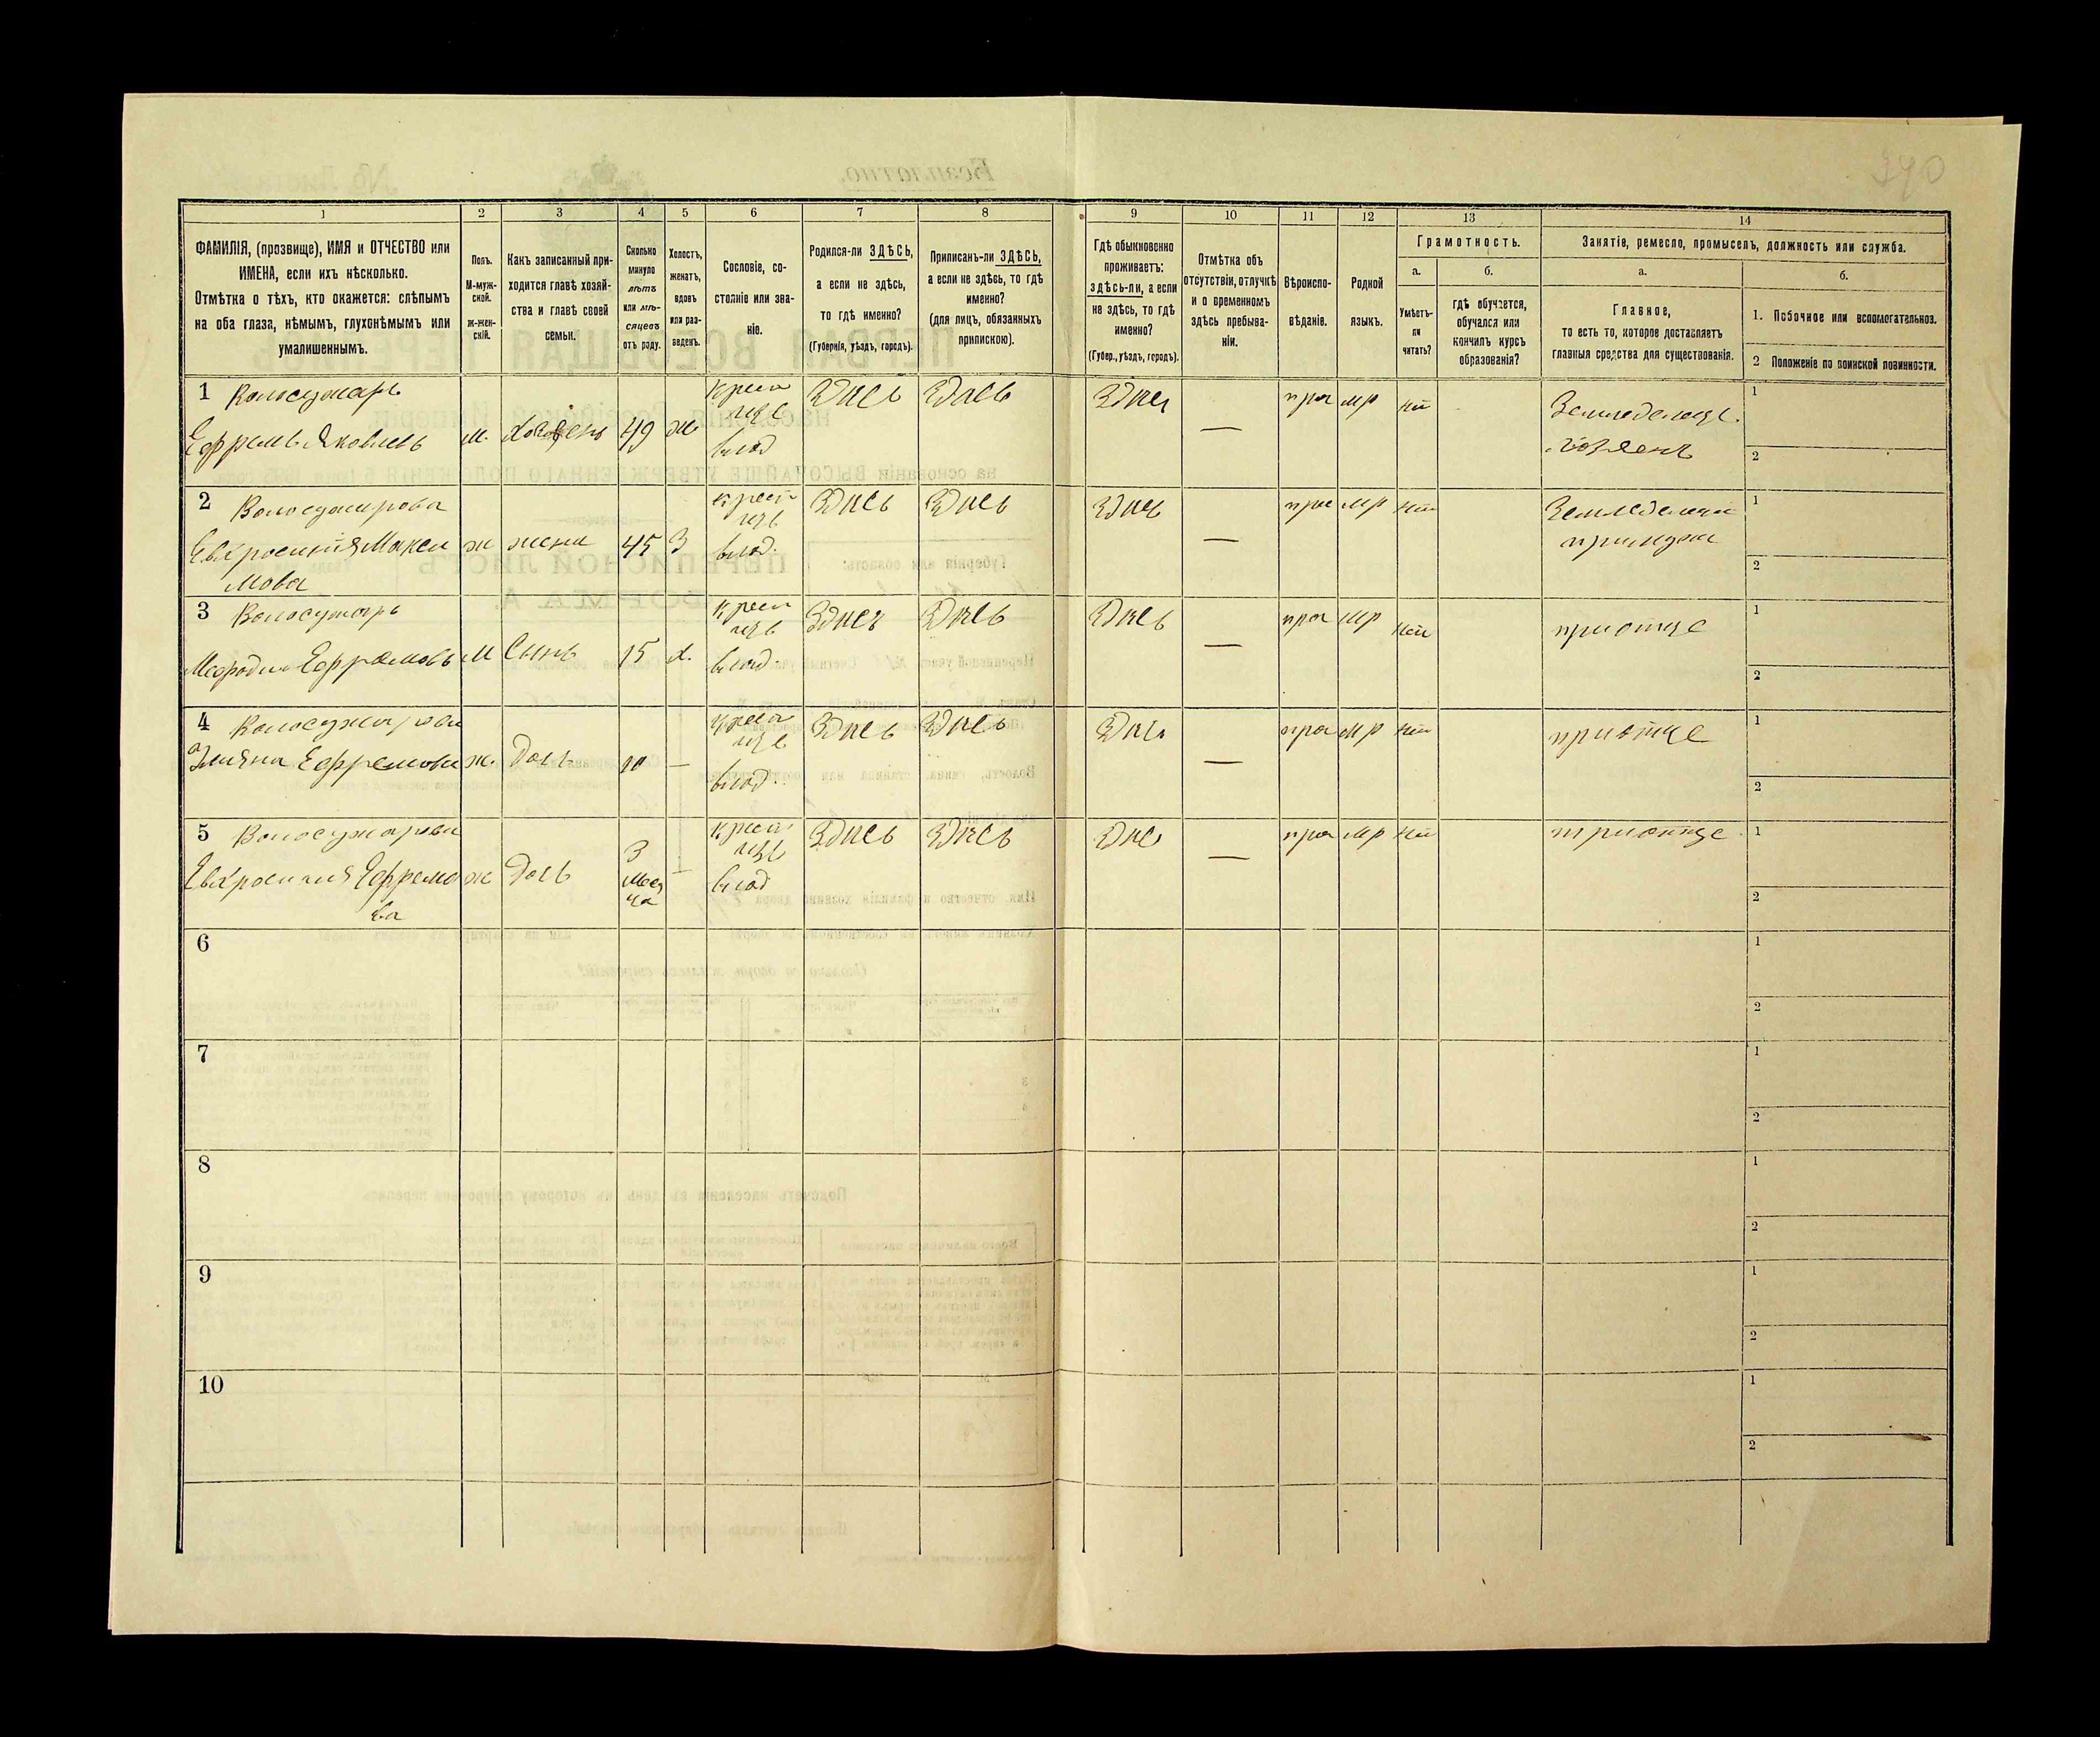 390
1
2
3
4
5
6
7
8
9
10
11
12
13
14
ФАМИЛІЯ, (прозвище), ИМЯ и ОТЧЕСТВО или
ИМЕНА, если ихъ нѣсколько.
Отмѣтка о тѣхъ, кто окажется: слѣпымъ
на оба глаза, нѣмымъ, глухонѣмымъ или
умалишеннымъ.
Полъ.
М-муж-
ской.
ж-жен-
скій.
Какъ записанный при-
ходится главѣ хозяй-
ства и главѣ своей
семьи.
Сколько
минуло
лѣтъ
или мѣ-
сяцевъ
отъ роду.
Холостъ,
женатъ,
вдовъ
или раз-
веденъ.
Сословіе, со-
стояніе или зва-
ніе.
Родился-ли ЗДѢСЬ,
а если не здѣсь,
то гдѣ именно?
(Губернія, уѣздъ, городъ).
Приписанъ-ли ЗДѢСЬ,
а если не здѣсь, то гдѣ
именно?
(для лицъ, обязанныхъ
припискою).
Гдѣ обыкновенно
проживаетъ:
здѣсь-ли, а если
не здѣсь, то гдѣ
именно?
(Губер., уѣздъ, городъ).
Отмѣтка объ
отсутствіи, отлучкѣ
и о временномъ
здѣсь пребыва-
ніи.
Вѣроиспо-
вѣданіе.
Родной
языкъ.
Грамотность.
а.
Умѣетъ-
ли
читать?
б.
гдѣ обучается,
обучался или
кончилъ курсъ
образованія?
Занятіе, ремесло, промыселъ, должность или служба.
а.
Главное,
то есть то, которое доставляетъ
главныя средства для существованія.
б.
1. Побочное или вспомогательное.
2 Положеніе по воинской повинности.
1 Волосужаръ
Ефремъ Яковлевъ
м.
хозяенъ
49
ж
крест
изъ
влад
Здись
Здись
Здись
—
пра
мр
нит
Земледелецъ
хозяенъ
1
2
2 Волосужарова
Евхросинія Макси
мова
ж
жена
45
З
крест
изъ
влад.
Здись
Здись
Здись
—
пра
мр
нит
Земледелецъ
примужи
1
2
3 Волосужаръ
Мефодій Ефремовъ
м
Сынъ
15
х.
крест
изъ
влад.
Здись
Здись
Здись
—
пра
мр
нит
приотце
1
2
4 Волосужарова
Ефремова
ж.
Дочь
10
—
крест
изъ
влад.
Здись
Здись
Здись
—
пра
мр
нит
приотце
1
2
5 Волосужарова
Евхросинія Ефремо
ва
ж
Дочь
3
меся
ца
—
крест
изъ
влад
Здись
Здись
Здись
—
пра
мр
нит
приотце
1
2
6
1
2
7
1
2
8
1
2
9
1
2
10
1
2